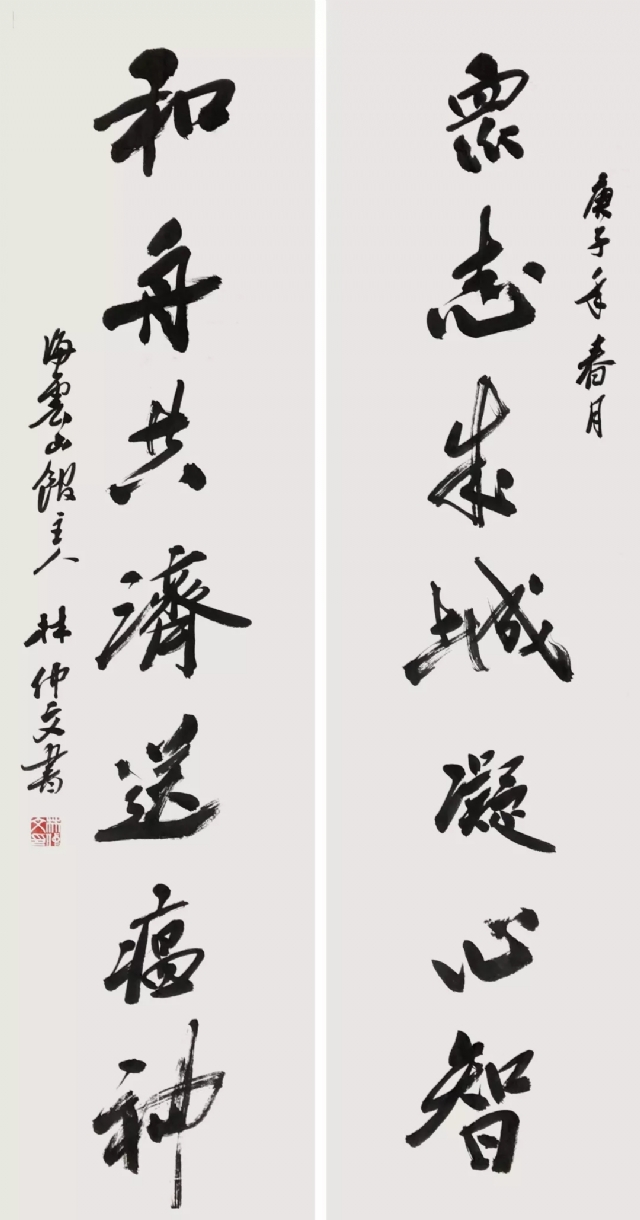 庚子年春月
眾志成城凝心智
和舟共濟送瘟神
海雲山館主人林仲文書
林仲文印